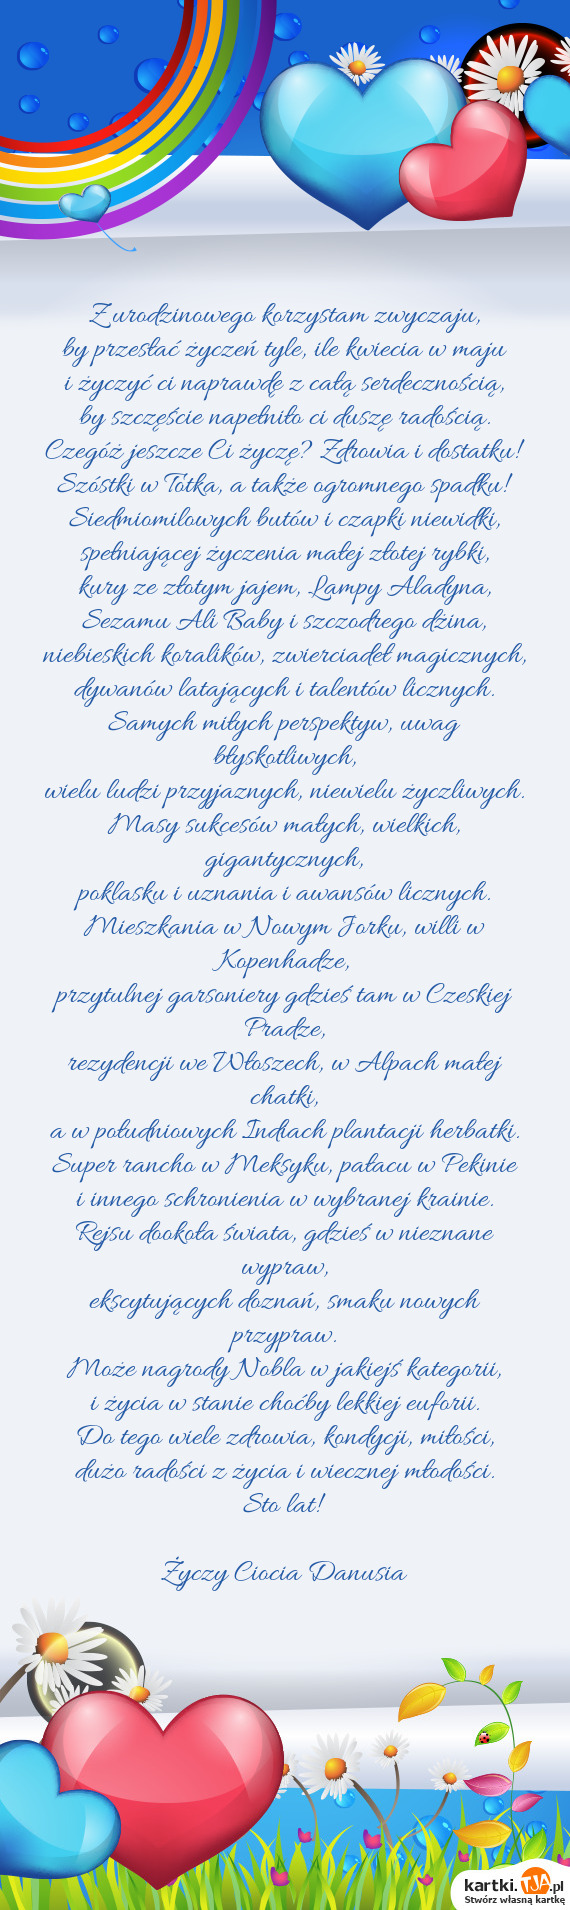 Z urodzinowego korzystam zwyczaju,
by przesłać życzeń tyle, ile kwiecia w maju
i życzyć ci naprawdę z całą serdecznością,
by szczęście napełniło ci duszę radością.
Czegóż jeszcze Ci życzę? Zdrowia i dostatku!
Szóstki w Totka, a także ogromnego spadku!
Siedmiomilowych butów i czapki niewidki,
spełniającej życzenia małej złotej rybki,
kury ze złotym jajem, Lampy Aladyna,
Sezamu Ali Baby i szczodrego dżina,
niebieskich koralików, zwierciadeł magicznych,
dywanów latających i talentów licznych.
Samych miłych perspektyw, uwag
błyskotliwych,
wielu ludzi przyjaznych, niewielu życzliwych.
Masy sukcesów małych, wielkich,
gigantycznych,
poklasku i uznania i awansów licznych.
Mieszkania w Nowym Jorku, willi w
Kopenhadze,
przytulnej garsoniery gdzieś tam w Czeskiej
Pradze,
rezydencji we Włoszech, w Alpach małej
chatki,
a w południowych Indiach plantacji herbatki.
Super rancho w Meksyku, pałacu w Pekinie
i innego schronienia w wybranej krainie.
Rejsu dookoła świata, gdzieś w nieznane
wypraw,
ekscytujących doznań, smaku nowych
przypraw.
Może nagrody Nobla w jakiejś kategorii,
i życia w stanie choćby lekkiej euforii.
Do tego wiele zdrowia, kondycji, miłości,
dużo radości z życia i wiecznej młodości.
Sto lat!
Życzy Ciocia Danusia
kartki.TJA.pl
Stwórz własną kartkę